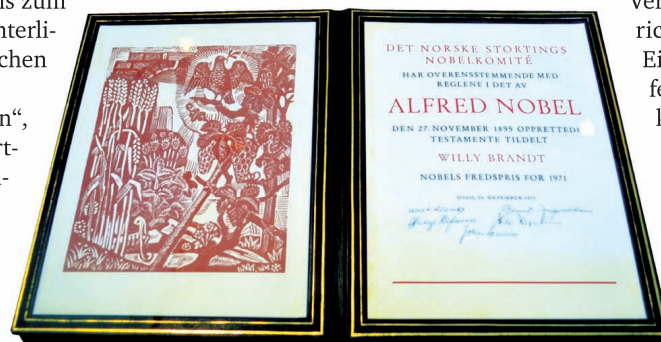 s zum
nterli-
chen
n“,
rt-
-
DET NORSKE STORTINGS
NOBELKOMITÉ
HAR OVERENSSTEMMENDE MED
REGLENE I DET AV
ALFRED NOBEL
DEN 27. NOVEMBER 1895 OPPRETTEDE
TESTAMENTE TILDELT
WILLY BRANDT
NOBELS FREDSPRIS FOR 1971
OSLO, 10. DESEMBER 1971
ric
Ei
fe